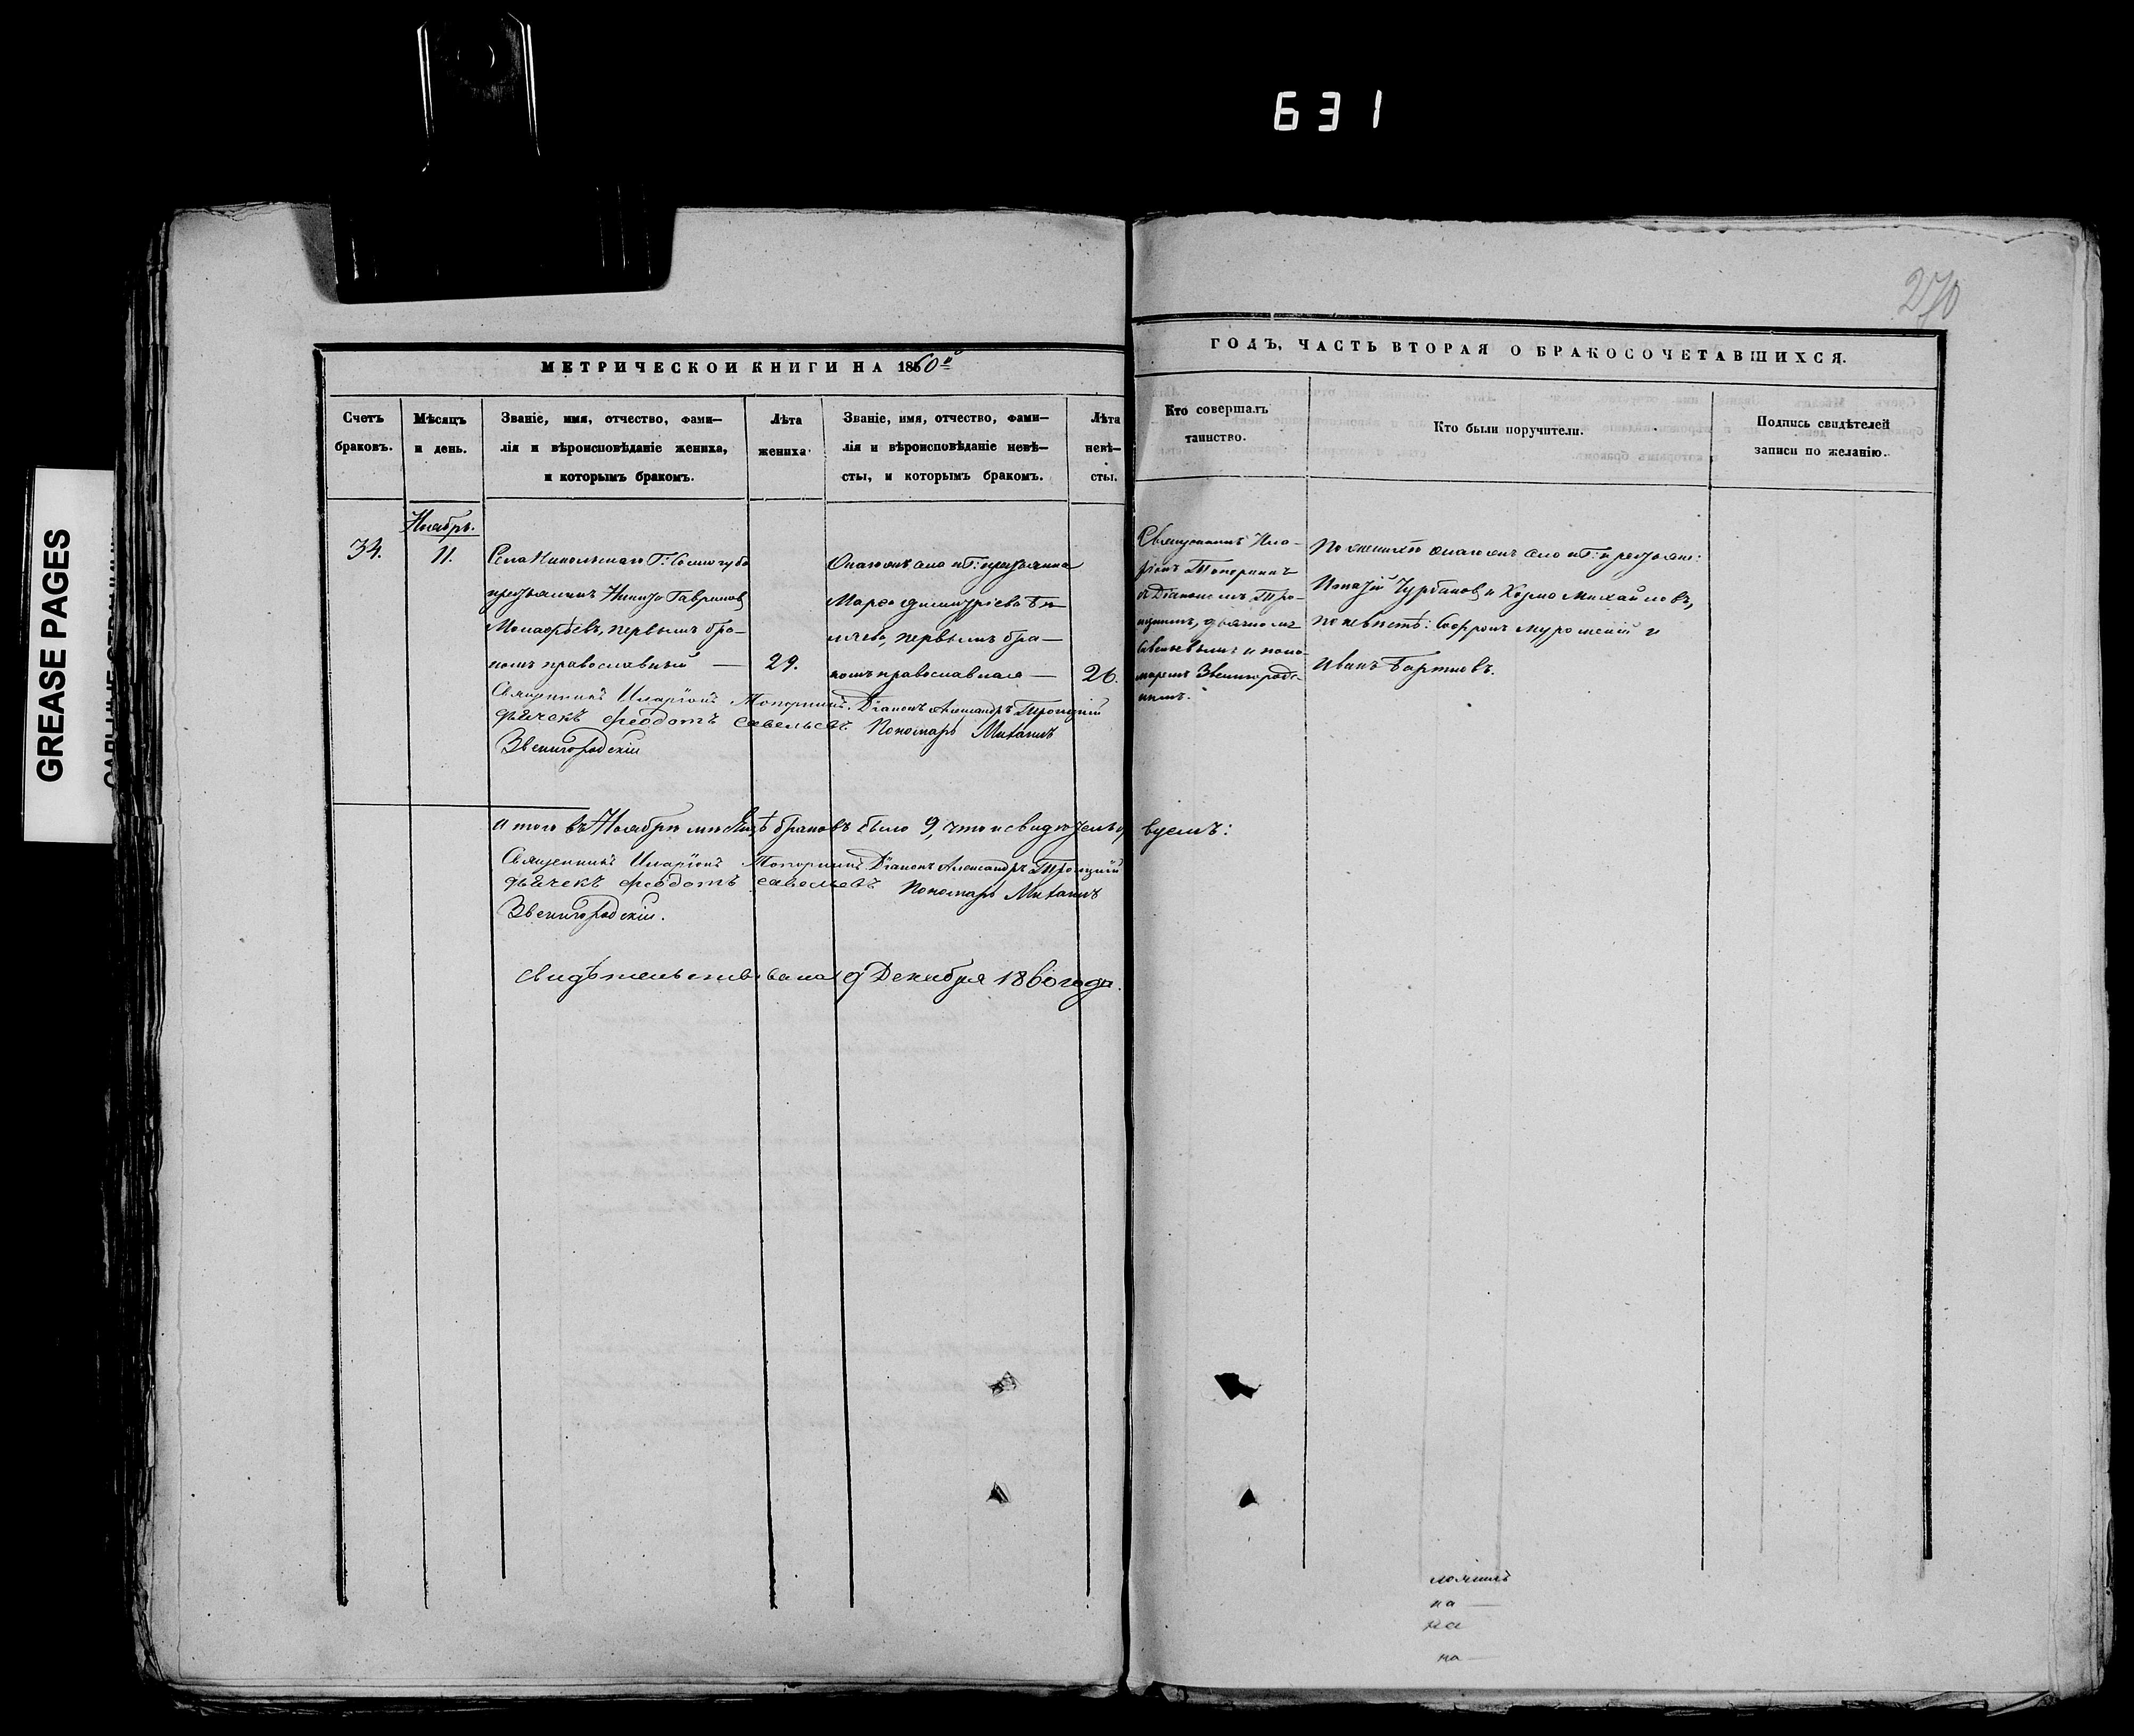 631
270
GREASE PAGES
МЕТРИЧЕСКОЙ КНИГИ НА 1860й
ГОДЪ, ЧАСТЬ ВТОРАЯ О БРАКОСОЧЕТАВШИХСЯ.
Счетъ
браковъ.
Мѣсяцъ
и день.
Званіе, имя, отчество, фами-
лія и вѣроисповѣданіе жениха,
и которымъ бракомъ.
Лѣта
жениха
Званіе, имя, отчество, фами-
лія и вѣроисповѣданіе невѣ-
сты, и которымъ бракомъ.
Лѣта
невѣ-
сты.
Кто совершалъ
таинство.
Кто были поручители.
Подпись свидѣтелей
записи по желанію.
34.
Ноябрь.
11.
Села Никольскаго Г:
крестьянинъ Никита Гавриловъ
первымъ бра-
комъ православный —
29.
Онагожъ села и Г: крестьянка
Марѳа Димитріева
первымъ бра-
комъ православная —
26.
Священникъ Ила-
ріонъ Топоринъ
съ Діакономъ Тро-
ицкимъ, дьячкомъ
Савельевымъ и поно-
маремъ Звенигородс-
кимъ.
По женихѣ онагожъ села и Г: крестьяне:
Игнатій Чурбановъ и Козма Михайловъ,
по невѣстѣ: Софронъ и
Иванъ
Священникъ Иларіонъ Топоринъ. Діаконъ Александръ Троицкій
дьячекъ Феодотъ Савельевъ Пономарь Михаилъ
Звенигородскій
Итого въ Ноябрѣ мѣсяцѣ браковъ было 9, что и свидѣтельст
вуемъ:
Священникъ Иларіонъ Топоринъ Діаконъ Александръ Троицкій
дьячекъ Феодотъ Савельевъ Пономарь Михаилъ
Звенигородскій.
Свидѣтельствована 9 Декабря 1860 года.
на —
на
на —